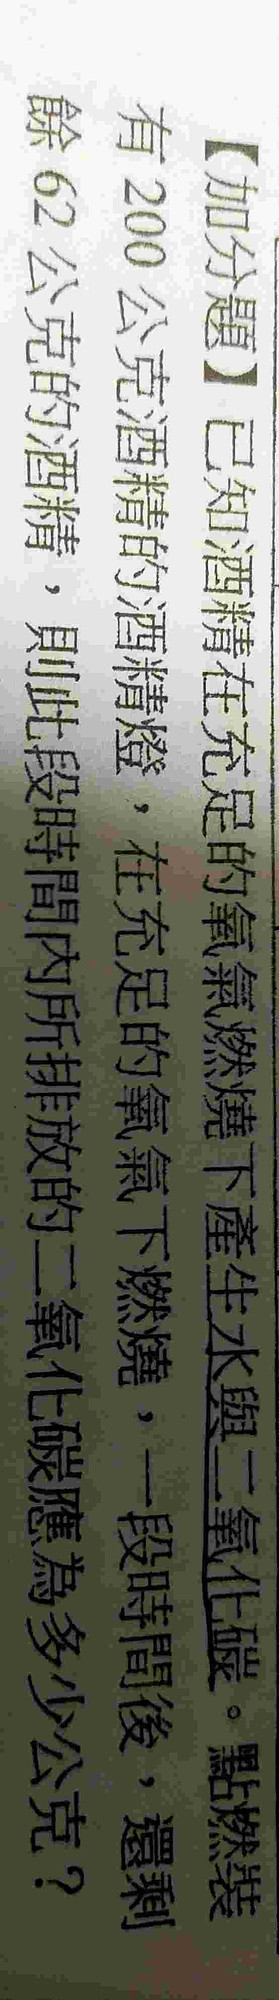 【加分題】已知酒精在充足的氧氣燃燒下產生水與二氧化碳。點燃裝
有 200 公克酒精的酒精燈，在充足的氧氣下燃燒，一段時間後，還剩
餘 62 公克的酒精，則此段時間內所排放的二氧化碳應為多少公克？